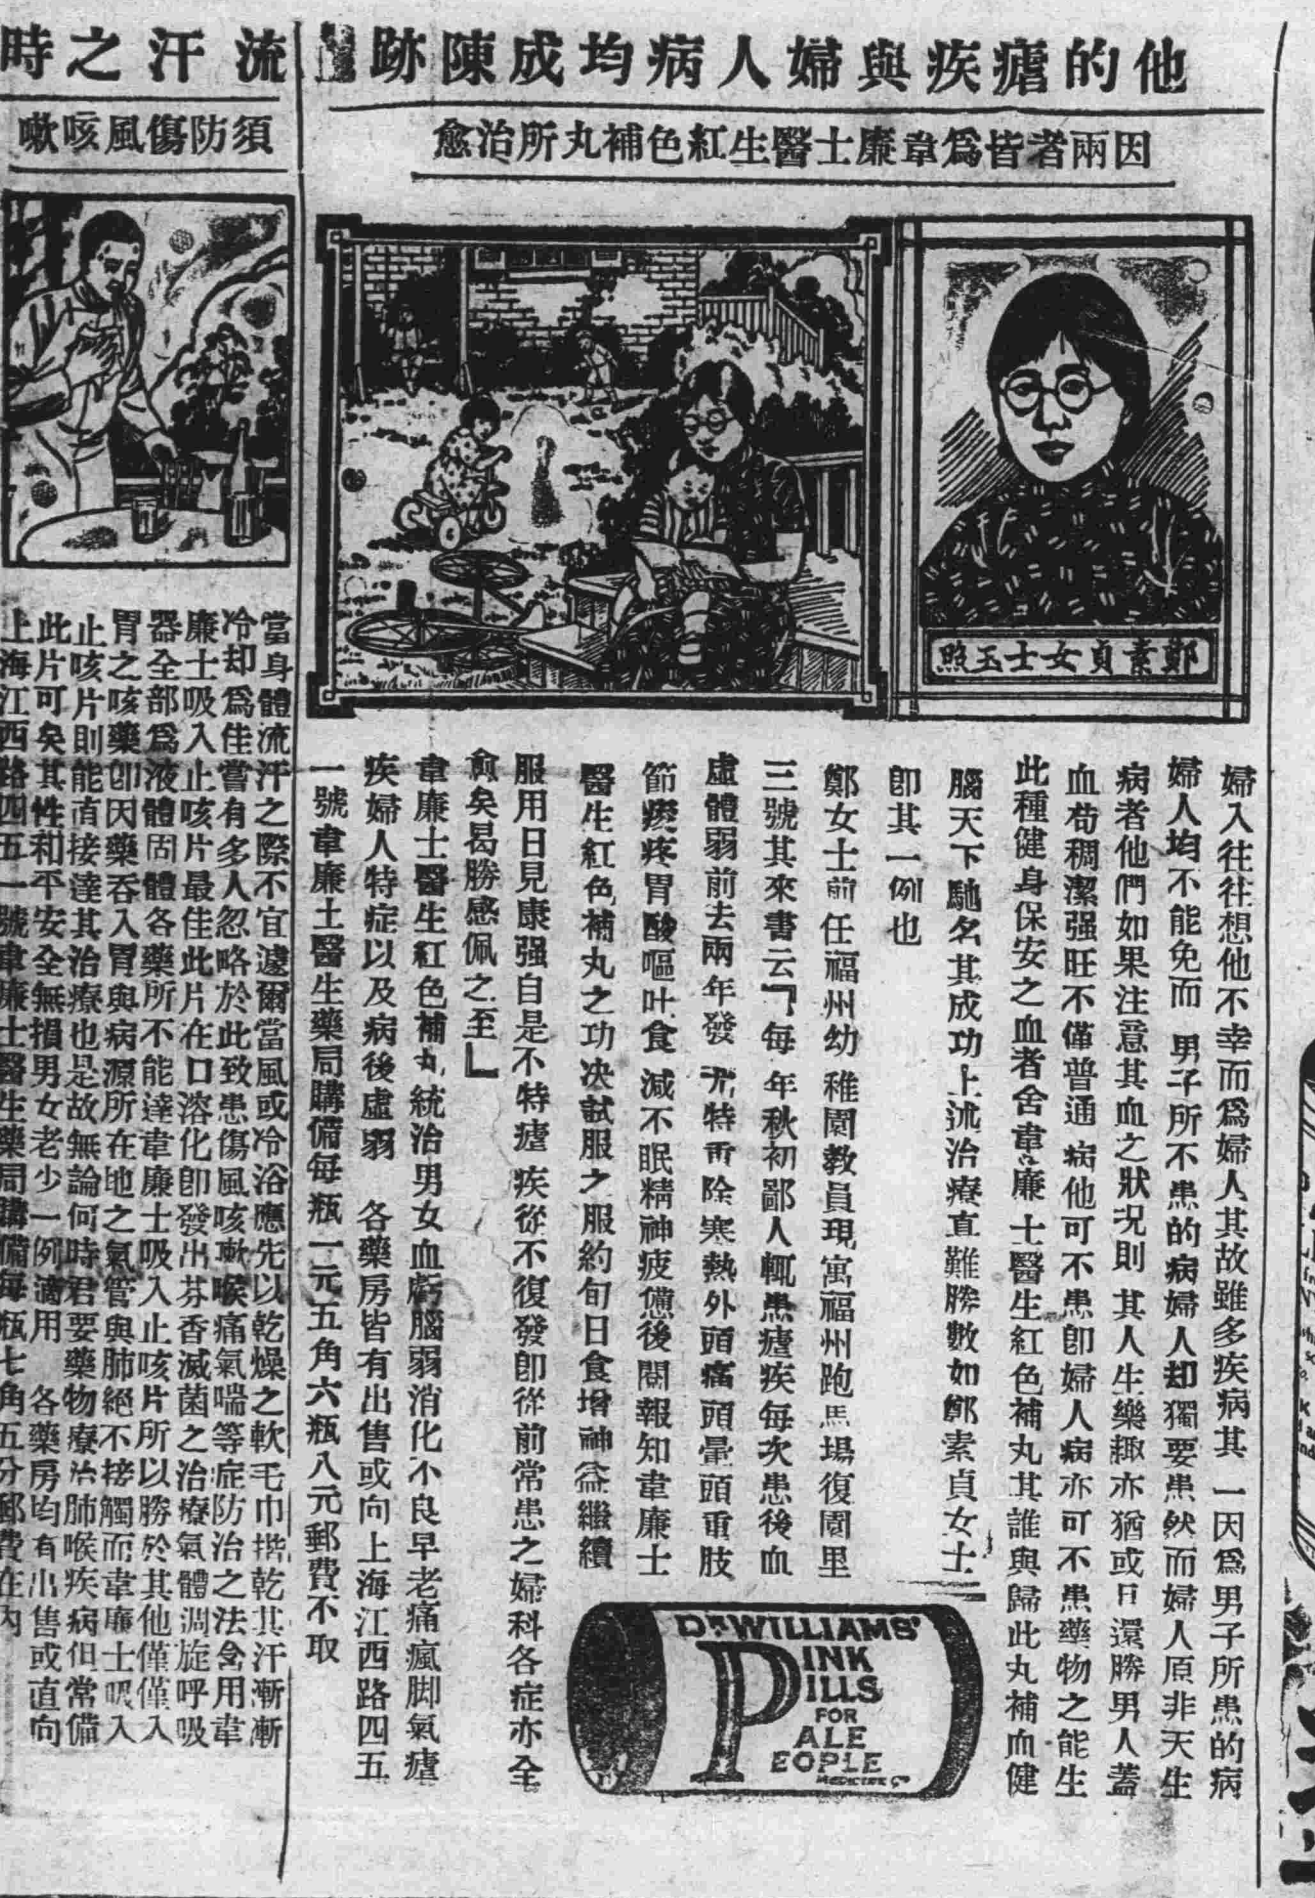 他的瘧疾與婦人病均成陳跡
因兩者皆爲韋廉士醫生紅色補丸所治愈
鄭素貞女士玉照
婦人往往想他不幸而爲婦人其故雖多疾病其一因爲男子所患的病
婦人均不能免而男子所不患的病婦人却獨要患然而婦人原非天生
病者他們如果注意其血之狀况則其人生樂趣亦猶或且還勝男人蓋
血苟稠潔强旺不僅普通病他可不患卽婦人病亦可不患藥物之能生
此種健身保安之血者舍韋廉士醫生紅色補丸其誰與歸此丸補血健
腦天下馳名其成功上述治療直難勝數如鄭素貞女士
卽其一例也
鄭女士前任福州幼稚園教員現寓福州跑馬場復園里
三號其來書云『每年秋初鄙人輒患瘧疾每次患後血
虛體弱前去兩年發尤特重除寒熱外頭痛頭暈頭重肢
節痠疼胃酸嘔吐食減不眠精神疲憊後閱報知韋廉士
醫生紅色補丸之功决試服之服約旬日食增神益繼續
服用日見康强自是不特瘧疾從不復發卽從前常患之婦科各症亦全
愈矣曷勝感佩之至』
韋廉士醫生紅色補丸統治男女血虧腦弱消化不良早老痛瘋脚氣瘧
疾婦人特症以及病後虛弱 各藥房皆有出售或向上海江西路四五
一號韋廉士醫生藥局購備每瓶一元五角六瓶八元郵費不取
DR WILLIAMS'
PINK
PILLS
FOR
PALE
PEOPLE
MEDICINE Co
流汗之時
須防傷風咳嗽
當身體流汗之際不宜遽爾當風或冷浴應先以乾燥之軟毛巾揩乾其汗漸漸
冷却爲佳嘗有多人忽略於此致患傷風咳嗽喉痛氣喘等症防治之法舍用韋
廉士吸入止咳片最佳此片在口溶化卽發出芬香滅菌之治療氣體週旋呼吸
器全部爲液體固體各藥所不能達韋廉士吸入止咳片所以勝於其他僅僅入
胃之咳藥卽因藥吞入胃與病源所在地之氣管與肺絕不接觸而韋廉士吸入
止咳片則能直接達其治療也是故無論何時君要藥物療治肺喉疾病但常備
此片可矣其性和平安全無損男女老少一例適用 各藥房均有出售或直向
上海江西路四五一號韋廉士醫生藥局購備每瓶七角五分郵費在內